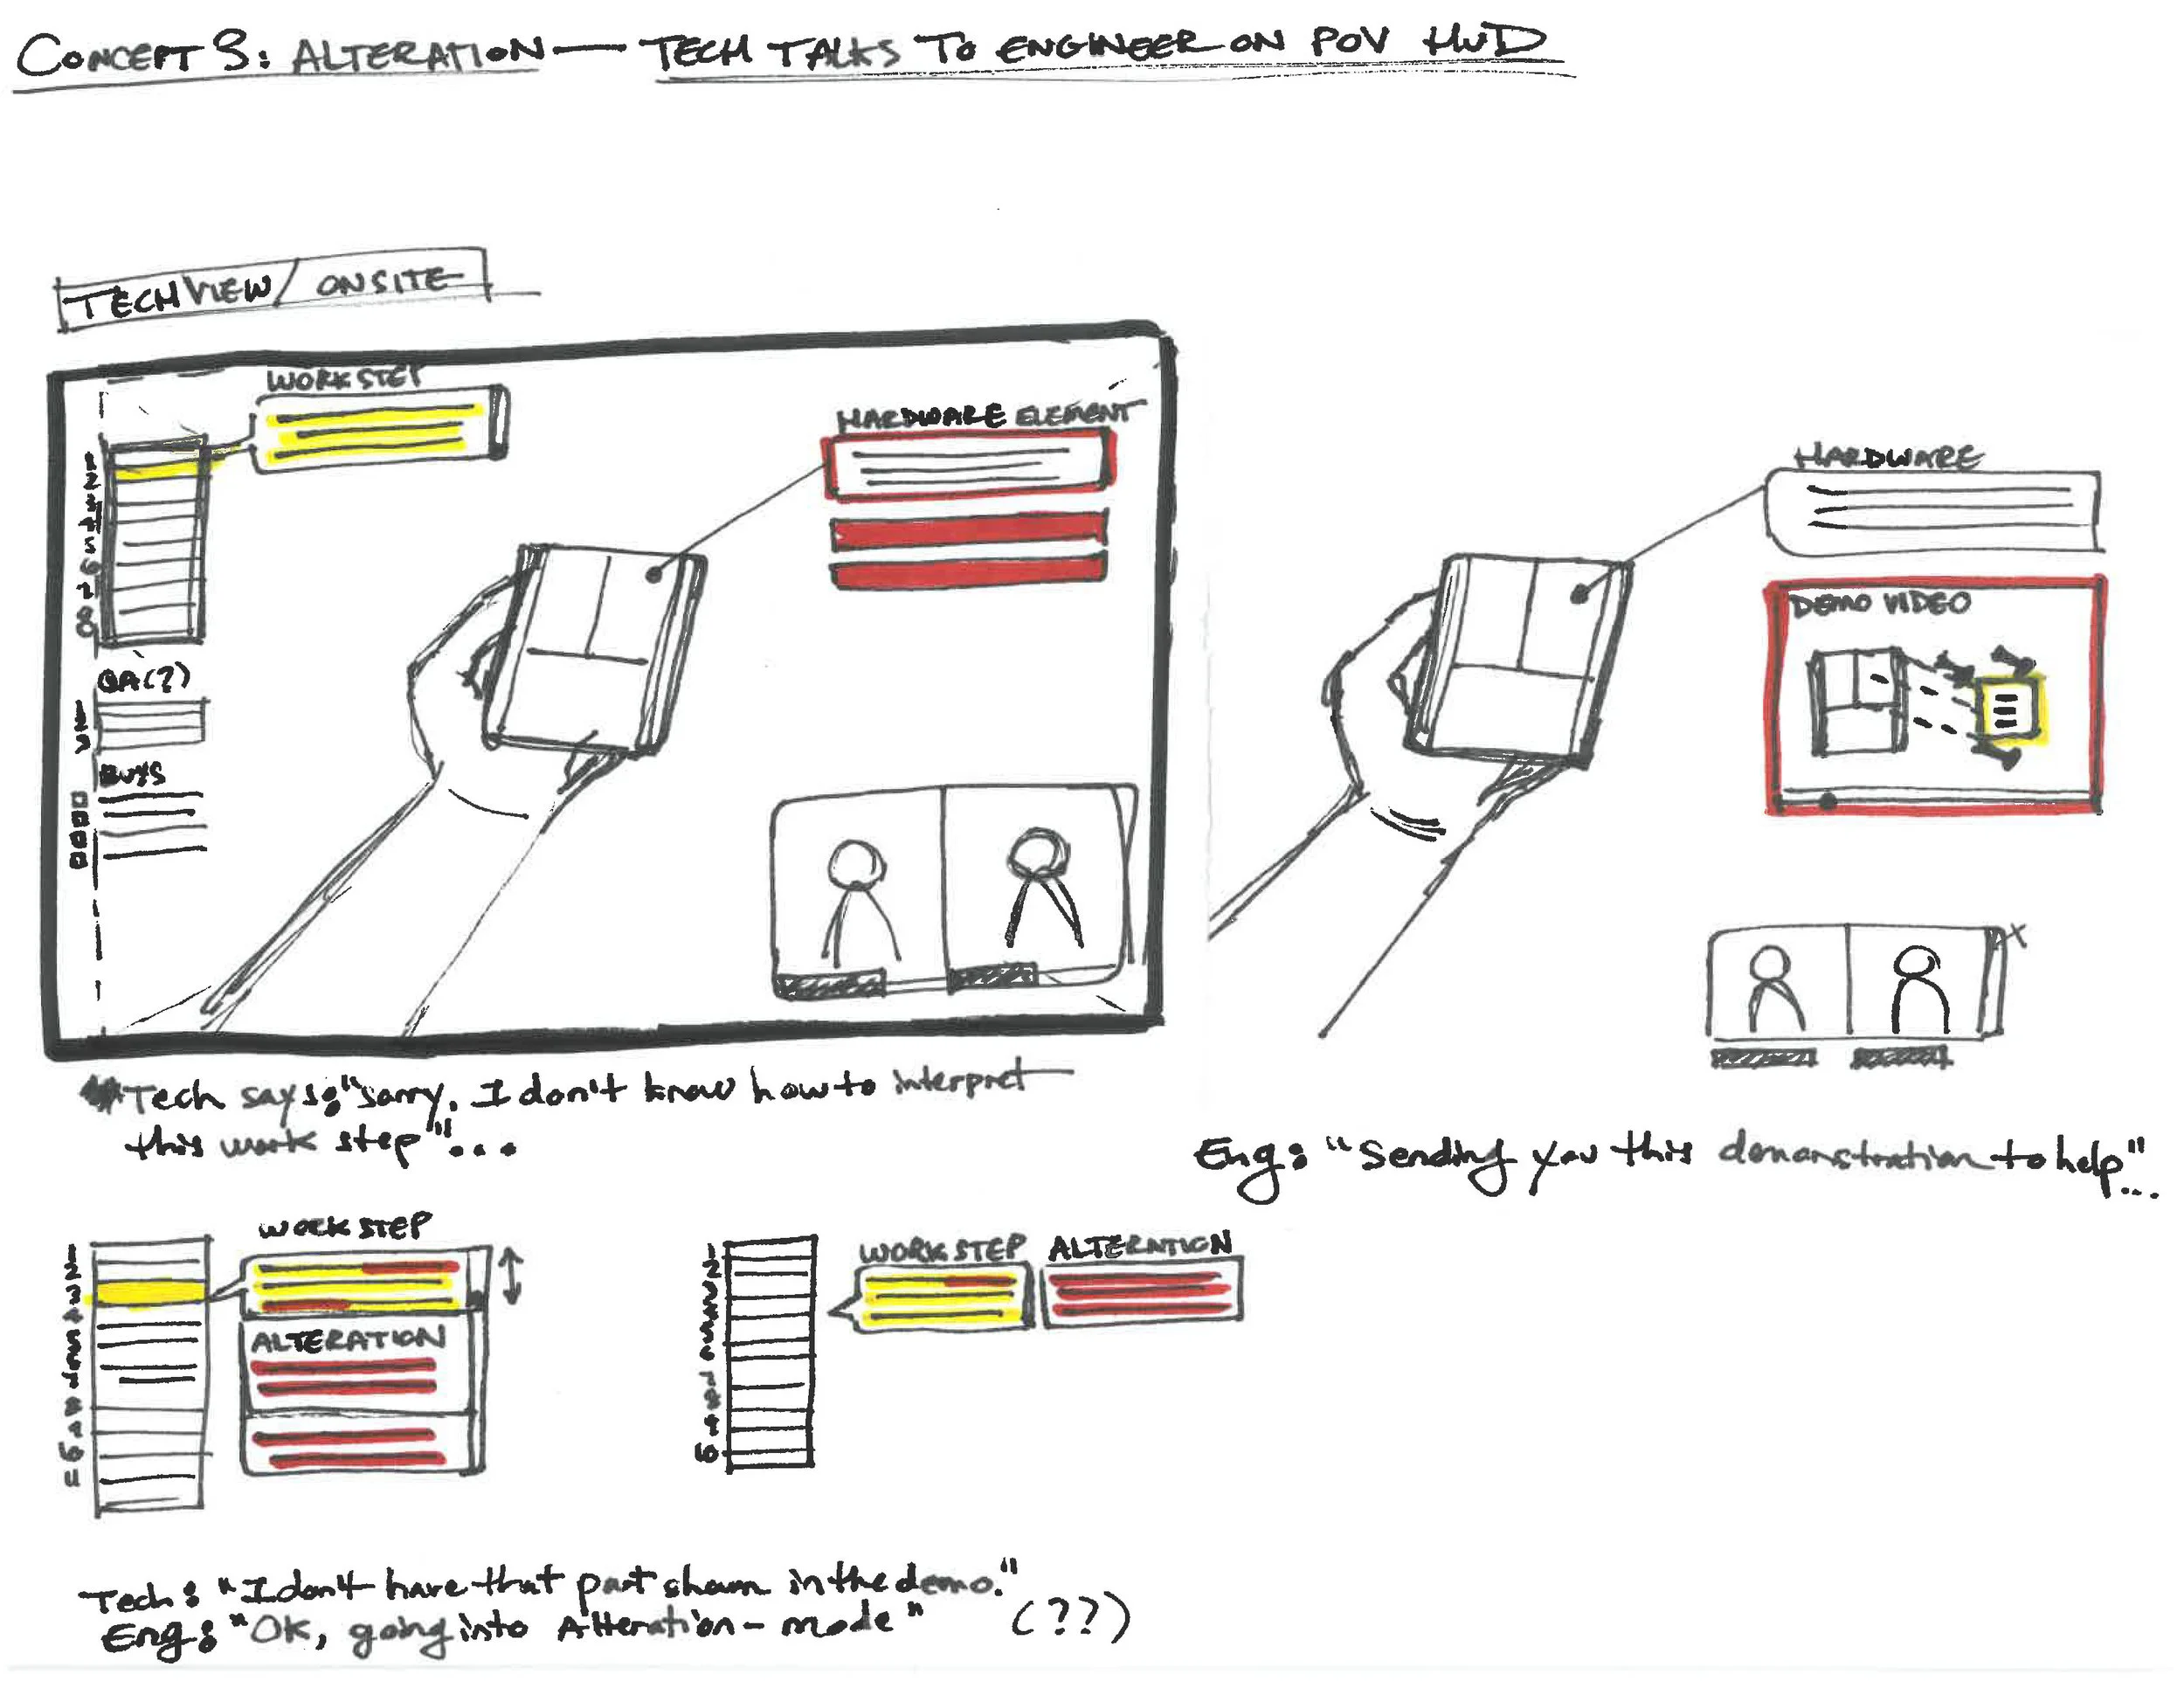 CONCEPT 3: ALTERATION — TECH TALKS TO ENGINEER ON POV HUD
TECH VIEW / ONSITE
WORK STEP
HARDWARE ELEMENT
1
2
3
4
5
6
7
8
QA(?)
1
2
3
BUYS
Tech says: "Sorry, I don't know how to interpret
this work step"...
HARDWARE
DEMO VIDEO
X
Eng: "Sending you this demonstration to help"...
WORK STEP
ALTERATION
1
2
3
4
5
6
7
8
9
10
11
WORK STEP ALTERATION
1
2
3
4
5
6
7
8
9
10
Tech: "I don't have that part shown in the demo."
Eng: "OK, going into Alteration-mode" (??)